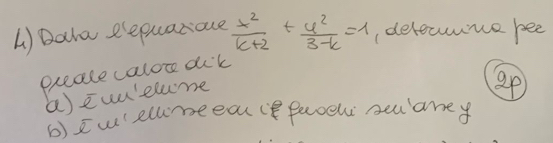 4) Data l'equazione x²/k+2 + y²/3-k =1, determina per
quale valore di k
a) È un'ellisse
b) È un'ellisse con i fuochi sull'asse y
2p